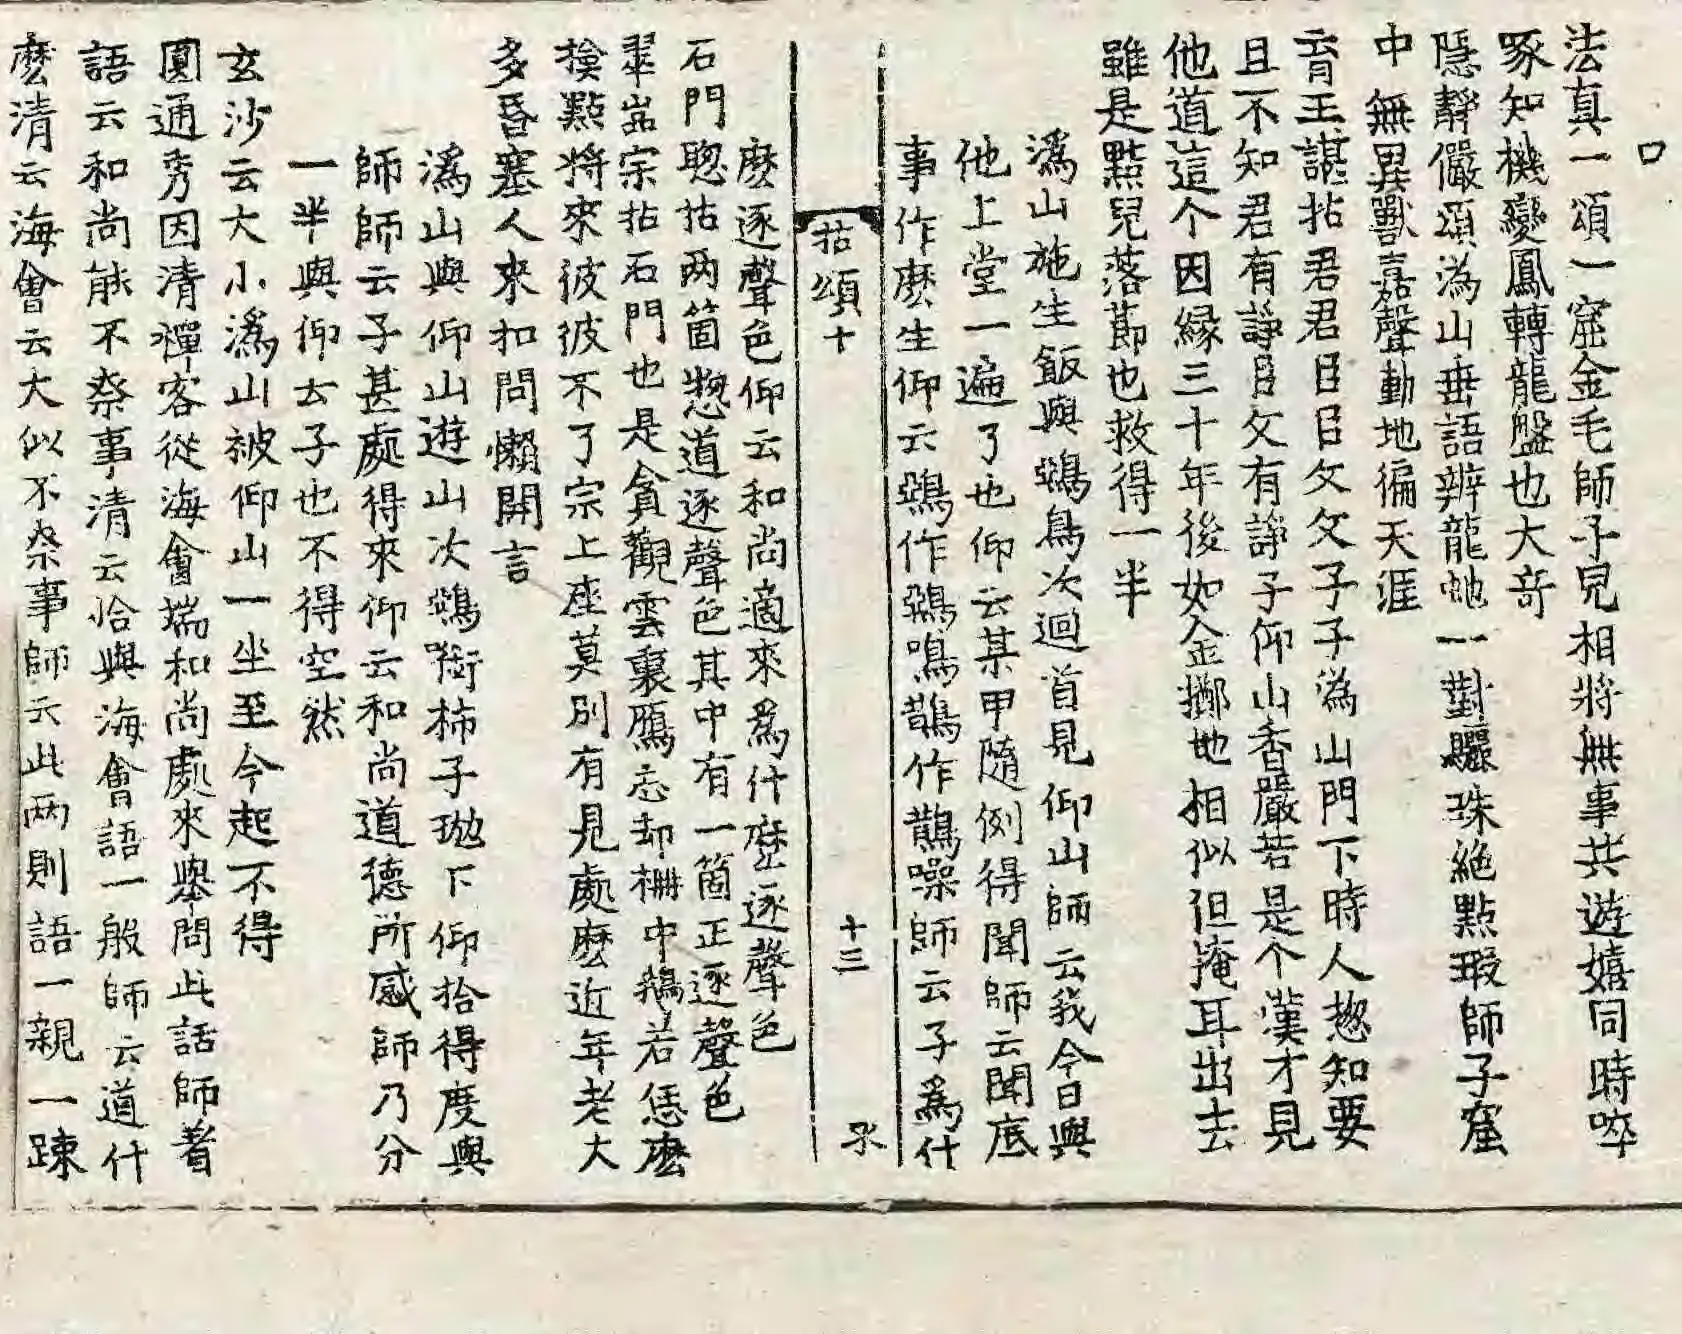 法真一頌一窟金毛師子兒相將無事共遊嬉同時啐
啄知機變鳳轉龍盤也大奇
隱靜儼頌溈山垂語辨龍虵一對驪珠絶點瑕師子窟
中無異獸嘉聲動地徧天涯
育王諶拈君君臣臣父父子子溈山門下時人㧾知要
且不知君有諍臣父有諍子仰山香嚴若是个漢才見
他道這个因緣三十年後如金擲地相似但掩耳出去
雖是點兒落莭也救得一半
溈山施生飯與鵶鳥次迴首見仰山師云我今日與
他上堂一遍了也仰云某甲隨例得聞師云聞底
事作麽生仰云鵶作鵶鳴鵲作鵲噪師云子爲什
拈頌十
十三
麽逐聲色仰云和尚適來爲什麽逐聲色
石門聦拈两箇㧾道逐聲色其中有一箇正逐聲色
翠嵓宗拈石門也是貪觀雲裏鴈忘却柵中鵝若恁麽
撿點將來彼彼不了宗上座莫別有見處麽近年老大
多昏塞人來扣問懶開言
溈山與仰山遊山次鵶㘅柿子抛下仰拾得度與
師師云子甚處得來仰云和尚道德所感師乃分
一半與仰云子也不得空然
玄沙云大小溈山被仰山一坐至今起不得
圓通秀因清禪客從海會端和尚處來舉問此話師着
語云和尚能不叅事清云恰與海會語一般師云道什
麽清云海會云大似不叅事師云此两則語一親一踈